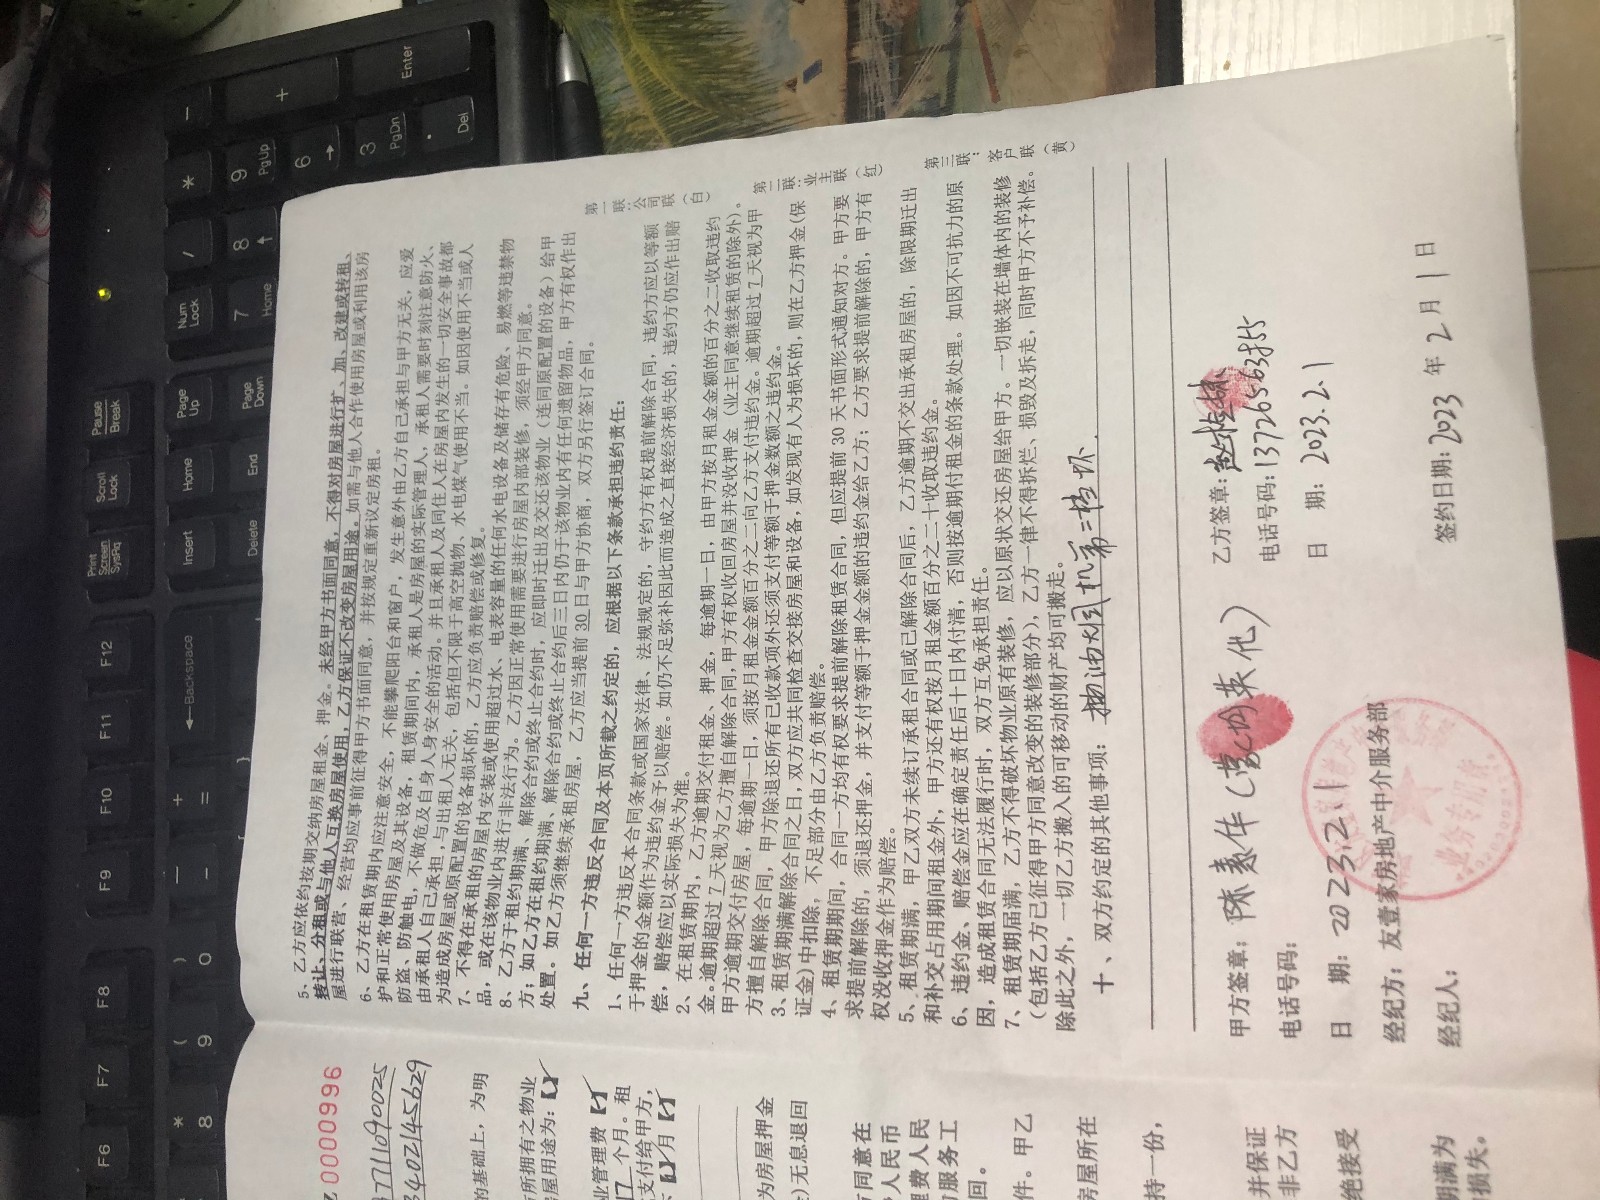 5、乙方应依约按期交纳房屋租金、押金。未经甲方书面同意，不得对房屋进行扩、加、改建或转租、
转让、分租或与他人互换房屋使用，乙方保证不改变房屋用途。如需与他人合作使用房屋或利用该房
屋进行联营、经营均应事前征得甲方书面同意，并按规定重新议定房租。
6、乙方在租赁期内应注意安全，不能攀爬阳台和窗户，发生意外由乙方自己承担与甲方无关，应爱
护和正常使用房屋及其设备，租赁期间内，承租人是房屋的实际管理人、承租人需要时刻注意防火、
防盗、防触电，不做危及自身人身安全的活动。并且承租人及同住人在房屋内发生的一切安全事故都
由承租人自己承担，与出租人无关，包括但不限于高空抛物、水电煤气使用不当。如因使用不当或人
为造成房屋或原配置的设备损坏的，乙方应负责赔偿或修复。
7、不得在承租的房屋内安装或使用超过水、电表容量的任何水电设备及储存有危险、易燃等违禁物
品，或在该物业内进行非法行为。乙方因正常使用需要进行房屋内部装修，须经甲方同意。
8、乙方于租约期满、解除合约或终止合约时，应即时迁出及交还该物业（连同原配置的设备）给甲
方；如乙方在租约期满、解除合约或终止合约后三日内仍于该物业内有任何遗留物品，甲方有权作出
处置。如乙方须继续承租房屋，乙方应当提前30日与甲方协商，双方另行签订合同。
九、任何一方违反合同及本页所载之约定的，应根据以下条款承担违约责任：
1、任何一方违反本合同条款或国家法律、法规规定的，守约方有权提前解除合同，违约方应以等额
于押金的金额作为违约金予以赔偿。如仍不足弥补因此而造成之直接经济损失的，违约方仍应作出赔
偿，赔偿应以实际损失为准。
2、在租赁期内，乙方逾期交付租金、押金，每逾期一日，由甲方按月租金金额的百分之二收取违约
金。逾期超过7天视为乙方擅自解除合同，甲方有权收回房屋并没收押金（业主同意继续租赁的除外）。
甲方逾期交付房屋，每逾期一日，须按月租金金额百分之二向乙方支付违约金。逾期超过7天视为甲
方擅自解除合同，甲方除退还所有已收款项外还须支付等额于押金数额之违约金。
3、租赁期满解除合同之日，双方应共同检查交接房屋和设备，如发现有人为损坏的，则在乙方押金（保
证金）中扣除，不足部分由乙方负责赔偿。
4、租赁期期间，合同一方均有权要求提前解除租赁合同，但应提前30天书面形式通知对方。甲方要
求提前解除的，须退还押金，并支付等额于押金金额的违约金给乙方；乙方要求提前解除的，甲方有
权没收押金作为赔偿。
5、租赁期满，甲乙双方未续订承租合同或已解除合同后，乙方逾期不交出承租房屋的，除限期迁出
和补交占用期间租金外，甲方还有权按月租金额百分之二十收取违约金。
6、违约金、赔偿金应在确定责任后十日内付清，否则按逾期付租金的条款处理。如因不可抗力的原
因，造成租赁合同无法履行时，双方互免承担责任。
7、租赁期届满，乙方不得破坏物业原有装修，应以原状交还房屋给甲方。一切嵌装在墙体内的装修
（包括乙方已征得甲方同意改变的装修部分），乙方一律不得拆烂、损毁及拆走，同时甲方不予补偿。
除此之外，一切乙方搬入的可移动的财产均可搬走。
十、双方约定的其他事项：抽油烟机第二档坏
第一联：公司联（白）
第二联：业主联（红）
第三联：客户联（黄）
甲方签章：陈素伴
乙方签章：
电话号码：
电话号码：13726563855
日 期：2023.2.1
日 期：2023.2.1
经纪方：友壹家房地产中介服务部
经纪人：
签约日期：2023年2月1日
业务专用章
0000996
的基础上，为明
所拥有之物业
屋用途为：【✓】
业管理费【✓】
17个月。租
支付给甲方，
月【✓】
为房屋押金
）无息退回
同意在
人民币
费人民
服务工
回。
件。甲乙
房屋所在
持一份，
并保证
非乙方
绝接受
期满为
损失。
Print Screen SysRq
Scroll Lock
Pause Break
Insert
Home
Page Up
Delete
End
Page Down
Num Lock
/
*
-
7 Home
8
9 PgUp
+
6
3 PgDn
. Del
Enter
Backspace
F6
F7
F8
F9
F10
F11
F12
* 8
( 9
) 0